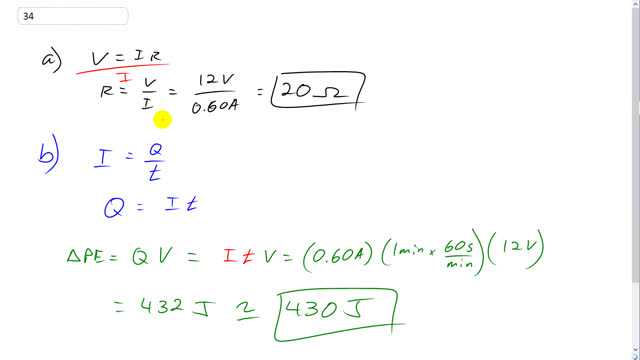 34
a) V = I R
I
R = V/I = 12V/0.60A = 20 Ω
b) I = Q/t
Q = I t
ΔPE = Q V = I t V = (0.60A) (1min × 60s/min) (12V)
= 432 J ≃ 430 J